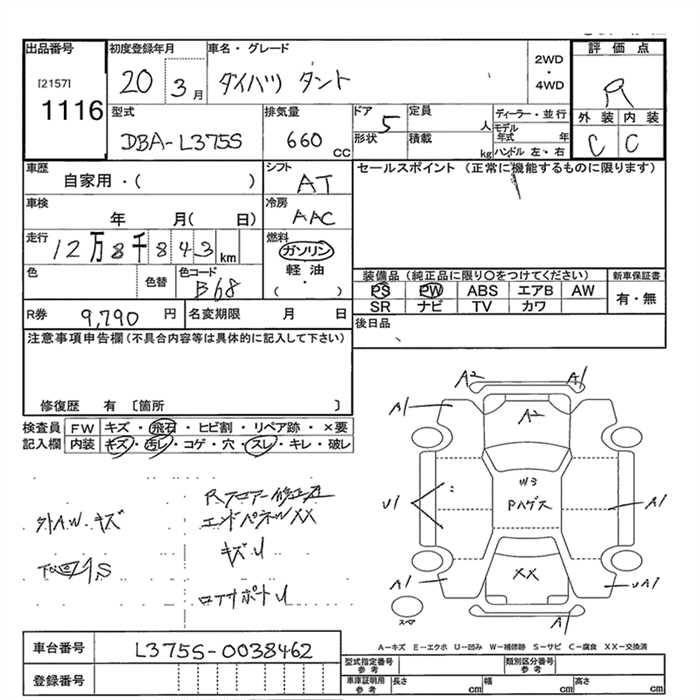 出品番号 初度登録年月 車名・グレード 2WD・4WD 評価点
[2157] 20 3月 ダイハツ タント R
1116
型式 排気量 ドア 定員 ディーラー・並行 外装 内装
DBA-L375S 660 CC 5 形状 積載 人 モデル年式 年 kg ハンドル 左・右 C C
車歴 シフト セールスポイント (正常に機能するものに限ります)
自家用・( ) AT
車検 冷房
年 月( 日) AAC
走行 燃料
12万8千843km ガソリン
色 色替 色コード 軽油 装備品 (純正品に限り〇をつけてください) 新車保証書
B68 (・) PS PW ABS エアB AW 有・無
R券 9,790円 名変期限 月 日 SR ナビ TV カワ
注意事項申告欄(不具合内容等は具体的に記入して下さい) 後日品
修復歴 有 〔箇所 〕
検査員 FW キズ・飛石・ヒビ割・リペア跡・×要
記入欄 内装 キズ・汚レ・コゲ・穴・スレ・キレ・破レ
A2 A1
A1 A2
W3
U1 Pハゲス A1
Rフロアー修正
外A.W.キズ エンドパネルXX
キズU
下回りS XX
A1 UA1
ロアサポートU
スペア A1
A-キズ E-エクボ U-凹み W-補修跡 S-サビ C-腐食 XX-交換済
車台番号 L375S-0038462 型式指定番号 参考 類別区分番号 参考
登録番号 車庫証明用 参考 長さ cm 幅 cm 高さ cm